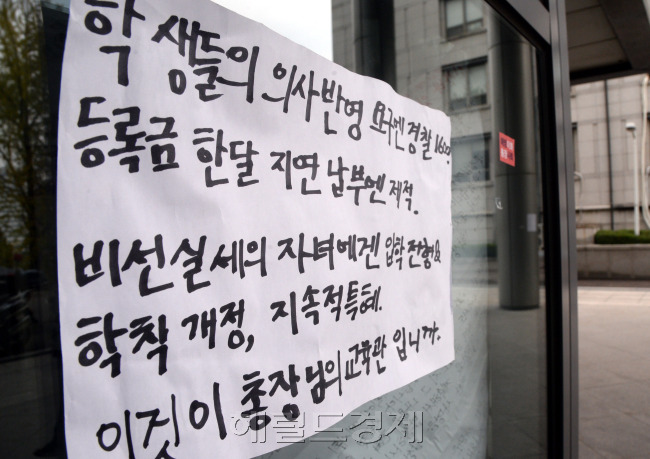 학생들의 의사반영 요구엔 경찰 1600
등록금 한달 지연 납부엔 제적.
비선실세의 자녀에겐 입학전형&
학칙 개정, 지속적특혜.
이것이 총장님의 교육관 입니까.
헤럴드경제